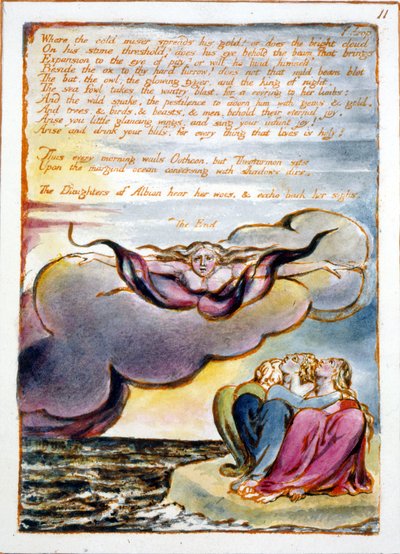 11
[drop
Where the cold miser spreads his gold? or does the bright cloud
On his stone threshold? does his eye behold the beam that brings
Expansion to the eye of pity? or will he bind himself
Beside the ox to thy hard furrow? does not that mild beam blot
The bat, the owl, the glowing tyger, and the king of night.
The sea fowl takes the wintry blast, for a cov'ring to her limbs:
And the wild snake, the pestilence to adorn him with gems & gold.
And trees. & birds. & beasts. & men. behold their eternal joy.
Arise you little glancing wings, and sing your infant joy!
Arise and drink your bliss, for every thing that lives is holy!
Thus every morning wails Oothoon, but Theotormon sits
Upon the margind ocean conversing with shadows dire.
The Daughters of Albion hear her woes, & eccho back her sighs.
The End